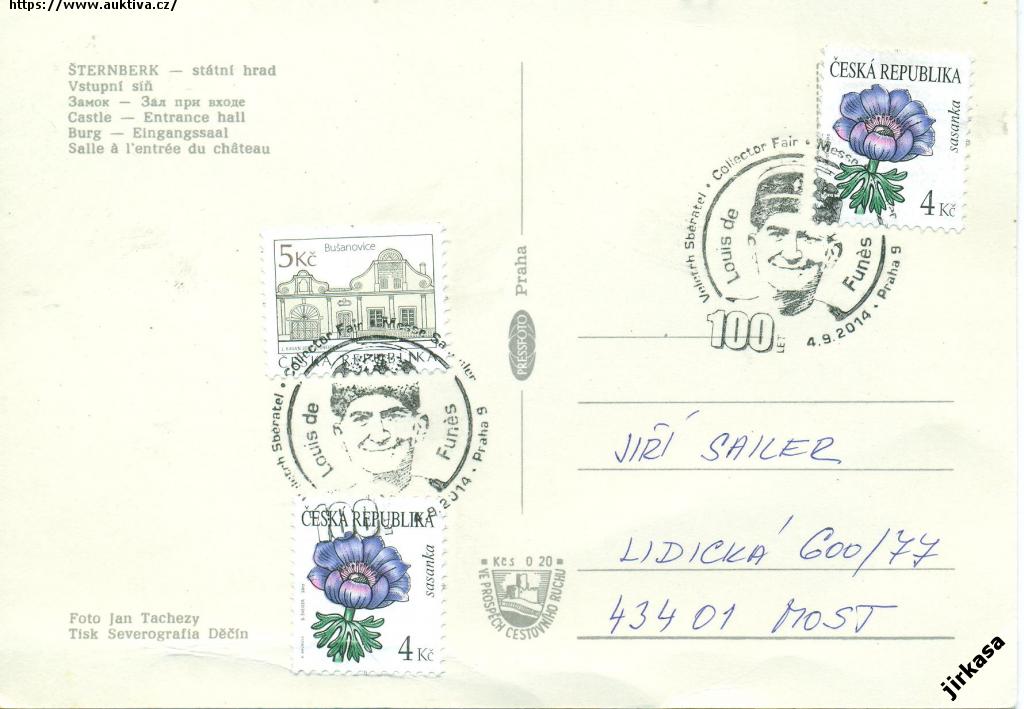 https://www.auktiva.cz/
ŠTERNBERK — státní hrad
Vstupní síň
Замок — Зал при входе
Castle — Entrance hall
Burg — Eingangssaal
Salle à l'entrée du château
ČESKÁ REPUBLIKA
sasanka
4 Kč
Vnitrh Sběratel • Collector Fair • Messe
Louis de Funès
100 LET
4.9.2014 • Praha 9
5Kč
Bušanovice
ČESKÁ REPUBLIKA
Sběratel • Collector Fair • Messe
Louis de Funès
100
4.9.2014 • Praha 9
ČESKÁ REPUBLIKA
sasanka
4 Kč
PRESSFOTO Praha
JIŘÍ SAILER
LIDICKÁ 600/77
43401 MOST
Kčs 0 20
VE PROSPĚCH CESTOVNÍHO RUCHU
Foto Jan Tachezy
Tisk Severografia Děčín
jirkasa